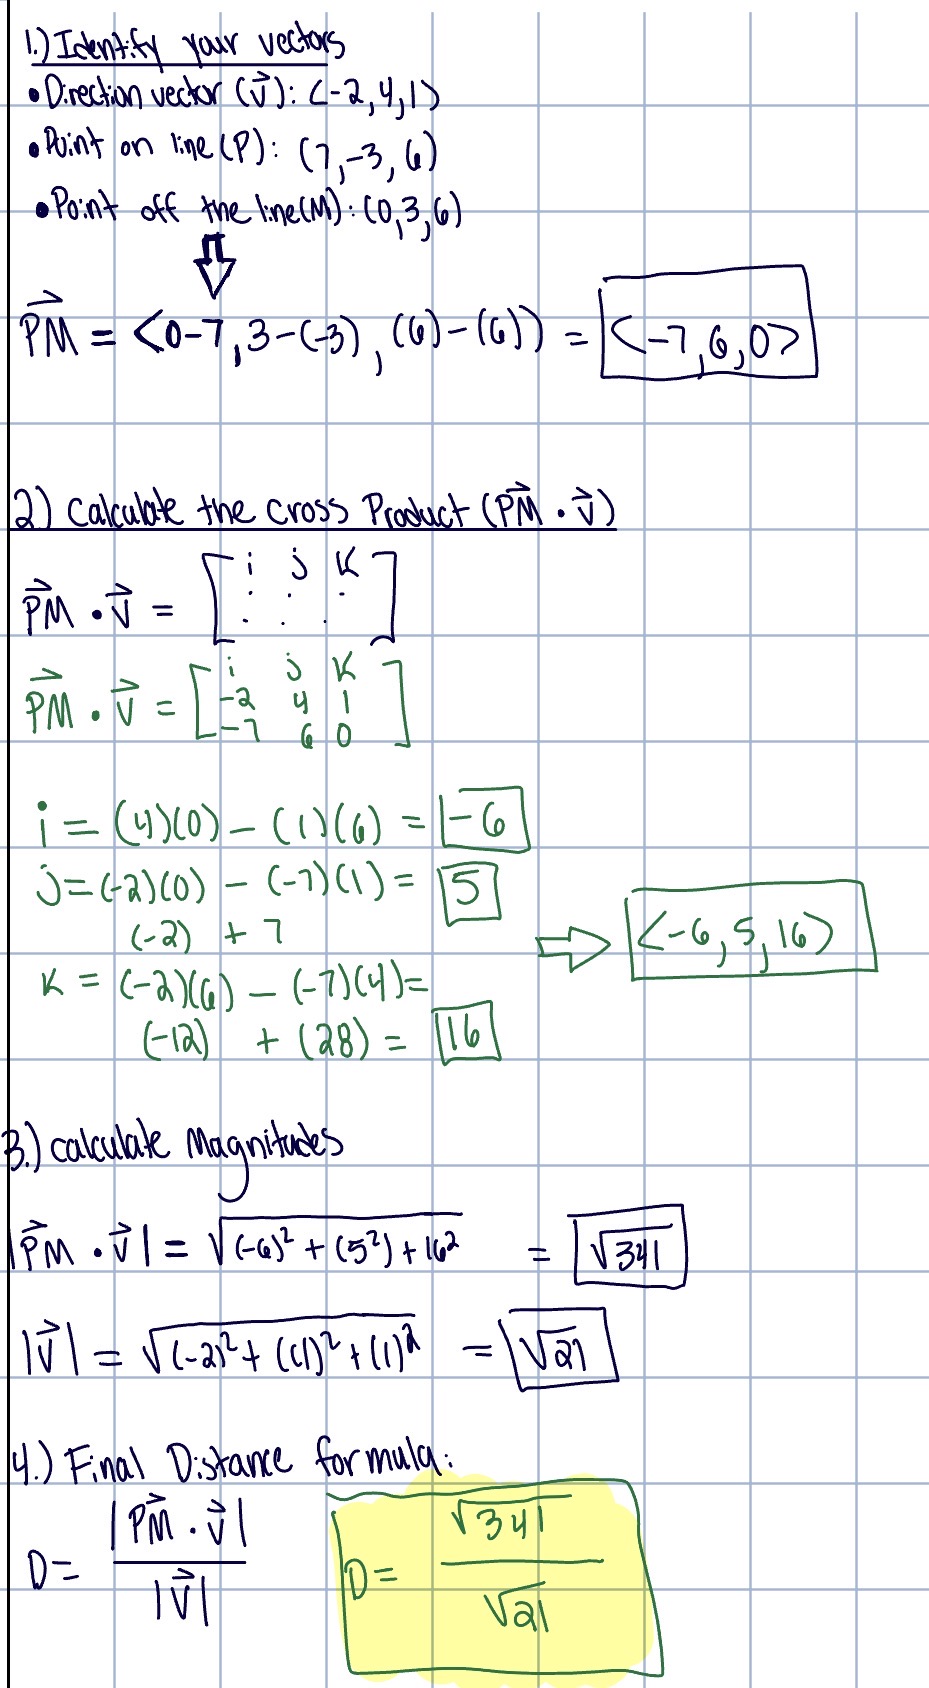 1.) Identify your vectors
• Direction vector (v⃗): <-2, 4, 1>
• Point on line (P): (7, -3, 6)
• Point off the line (M): (0, 3, 6)
PM⃗ = <0-7, 3-(-3), (6)-(6)) = <-7, 6, 0>
2.) Calculate the Cross Product (PM⃗ • v⃗)
PM⃗ • v⃗ = [ i j K
. . .
. . . ]
PM⃗ • v⃗ = [ i j K
-2 4 1
-7 6 0 ]
i = (4)(0) - (1)(6) = -6
j = (-2)(0) - (-7)(1) = 5
(-2) + 7
<-6, 5, 16>
K = (-2)(6) - (-7)(4) =
(-12) + (28) = 16
3.) Calculate Magnitudes
|PM⃗ • v⃗| = √(-6)² + (5²) + 16² = √341
|v⃗| = √(-2)² + (4)² + (1)² = √21
4.) Final Distance formula:
D = |PM⃗ • v⃗| / |v⃗|
D = √341 / √21